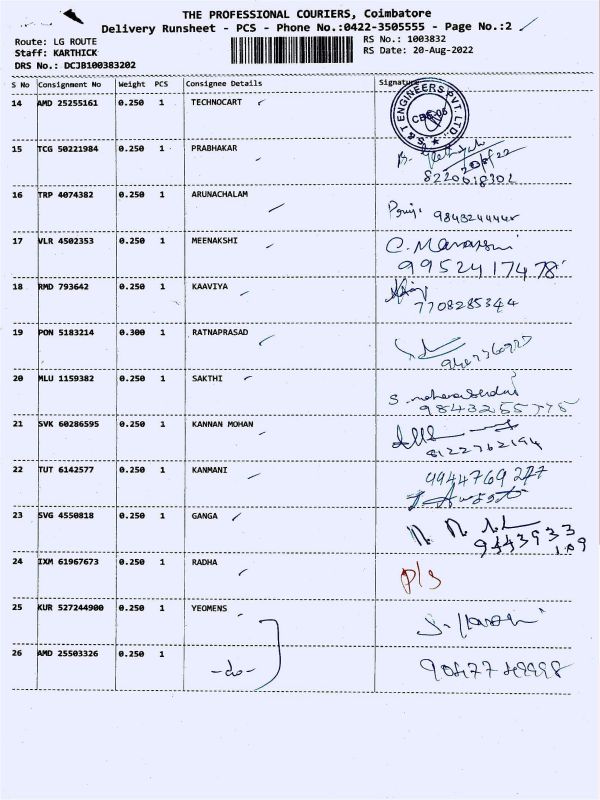 THE PROFESSIONAL COURIERS, Coimbatore
Delivery Runsheet - PCS - Phone No.:0422-3505555 - Page No.:2
Route: LG ROUTE RS No.: 1003832
Staff: KARTHICK RS Date: 20-Aug-2022
DRS No.: DCJB100383202
S No Consignment No Weight PCS Consignee Details Signature
14 AMD 25255161 0.250 1 TECHNOCART
S & T ENGINEERS PVT. LTD.
CBE-05
15 TCG 50221984 0.250 1 PRABHAKAR
20/8/22
8220618302
16 TRP 4074382 0.250 1 ARUNACHALAM
17 VLR 4502353 0.250 1 MEENAKSHI
9952417478
18 RMD 793642 0.250 1 KAAVIYA
7708285344
19 PON 5183214 0.300 1 RATNAPRASAD
20 MLU 1159382 0.250 1 SAKTHI
21 SVK 60286595 0.250 1 KANNAN MOHAN
8122762194
22 TUT 6142577 0.250 1 KANMANI
9944769277
23 SVG 4550818 0.250 1 GANGA
9443933
109
24 IXM 61967673 0.250 1 RADHA
P/S
25 KUR 527244900 0.250 1 YEOMENS
26 AMD 25503326 0.250 1 -do-